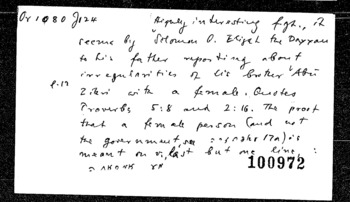 Or 1080 J124 Highly interesting fgt., it
seems by Solomon b. Elijah the Dayyan
to his father reporting about
irregularities of his brother Abū
p.17 Zikri with a female. Quotes
Proverbs 5:8 and 2:16. The proof
that a female person (and not
the government, see
meant on v, last but one line,
100972